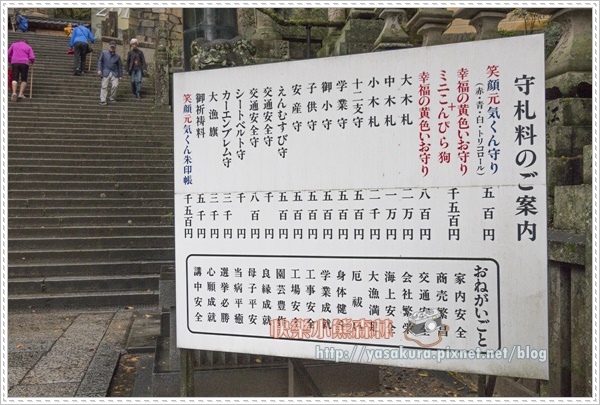 守札料のご案内
笑顔元気くん守り
(赤・青・白・トリコロール) 五百円
幸福の黄色いお守り
+
ミニこんぴら狗 千五百円
幸福の黄色いお守り 八百円
大木札 二万円
中木札 一万円
小木札 二千円
十二支守 五百円
学業守 五百円
御小守 五百円
子供守 五百円
安産守 五百円
えんむすび守 五百円
交通安全守 五百円
交通安全守 八百円
シートベルト守 千円
カーエンブレム守 三千円
大漁旗 三千円
御祈祷料 五千円
笑顔元気くん朱印帳 千五百円
おねがいごと
家内安全
商売繁昌
交通安
会社繁
海上安
大漁満
厄祓
身体健
学業成就
工事安全
工場安全
園芸豊作
良縁成就
母子平安
当病平癒
選挙必勝
心願成就
講中安全
快樂小熊雅琳
http://yasakura.pixnet.net/blog